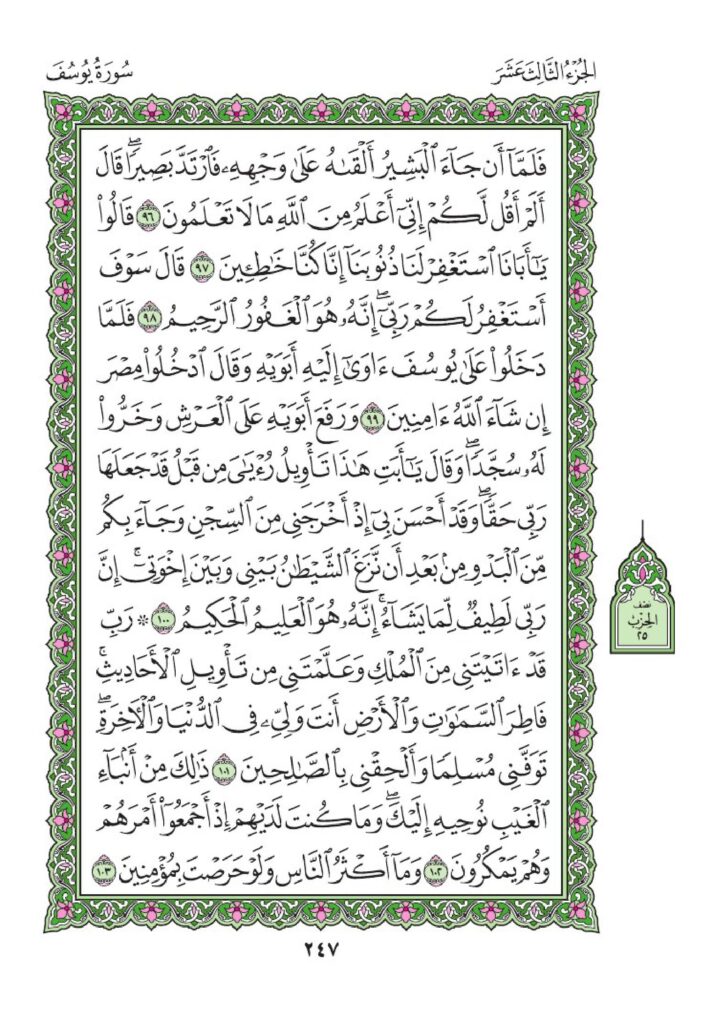 الجُزْءُ الثَّالِثَ عَشَرَ
سُورَةُ يُوسُفَ
فَلَمَّآ أَن جَآءَ ٱلۡبَشِيرُ أَلۡقَىٰهُ عَلَىٰ وَجۡهِهِۦ فَٱرۡتَدَّ بَصِيرٗاۖ قَالَ
أَلَمۡ أَقُل لَّكُمۡ إِنِّيٓ أَعۡلَمُ مِنَ ٱللَّهِ مَا لَا تَعۡلَمُونَ ٩٦ قَالُواْ
يَٰٓأَبَانَا ٱسۡتَغۡفِرۡ لَنَا ذُنُوبَنَآ إِنَّا كُنَّا خَٰطِـِٔينَ ٩٧ قَالَ سَوۡفَ
أَسۡتَغۡفِرُ لَكُمۡ رَبِّيٓۖ إِنَّهُۥ هُوَ ٱلۡغَفُورُ ٱلرَّحِيمُ ٩٨ فَلَمَّا
دَخَلُواْ عَلَىٰ يُوسُفَ ءَاوَىٰٓ إِلَيۡهِ أَبَوَيۡهِ وَقَالَ ٱدۡخُلُواْ مِصۡرَ
إِن شَآءَ ٱللَّهُ ءَامِنِينَ ٩٩ وَرَفَعَ أَبَوَيۡهِ عَلَى ٱلۡعَرۡشِ وَخَرُّواْ
لَهُۥ سُجَّدٗاۖ وَقَالَ يَٰٓأَبَتِ هَٰذَا تَأۡوِيلُ رُءۡيَٰيَ مِن قَبۡلُ قَدۡ جَعَلَهَا
رَبِّي حَقّٗاۖ وَقَدۡ أَحۡسَنَ بِيٓ إِذۡ أَخۡرَجَنِي مِنَ ٱلسِّجۡنِ وَجَآءَ بِكُم
مِّنَ ٱلۡبَدۡوِ مِنۢ بَعۡدِ أَن نَّزَغَ ٱلشَّيۡطَٰنُ بَيۡنِي وَبَيۡنَ إِخۡوَتِيٓۚ إِنَّ
رَبِّي لَطِيفٞ لِّمَا يَشَآءُۚ إِنَّهُۥ هُوَ ٱلۡعَلِيمُ ٱلۡحَكِيمُ ١٠٠ ۞ رَبِّ
قَدۡ ءَاتَيۡتَنِي مِنَ ٱلۡمُلۡكِ وَعَلَّمۡتَنِي مِن تَأۡوِيلِ ٱلۡأَحَادِيثِۚ
فَاطِرَ ٱلسَّمَٰوَٰتِ وَٱلۡأَرۡضِ أَنتَ وَلِيِّۦ فِي ٱلدُّنۡيَا وَٱلۡأٓخِرَةِۖ
تَوَفَّنِي مُسۡلِمٗا وَأَلۡحِقۡنِي بِٱلصَّٰلِحِينَ ١٠١ ذَٰلِكَ مِنۡ أَنۢبَآءِ
ٱلۡغَيۡبِ نُوحِيهِ إِلَيۡكَۖ وَمَا كُنتَ لَدَيۡهِمۡ إِذۡ أَجۡمَعُوٓاْ أَمۡرَهُمۡ
وَهُمۡ يَمۡكُرُونَ ١٠٢ وَمَآ أَكۡثَرُ ٱلنَّاسِ وَلَوۡ حَرَصۡتَ بِمُؤۡمِنِينَ ١٠٣
نصف
الحزب
٢٥
٢٤٧